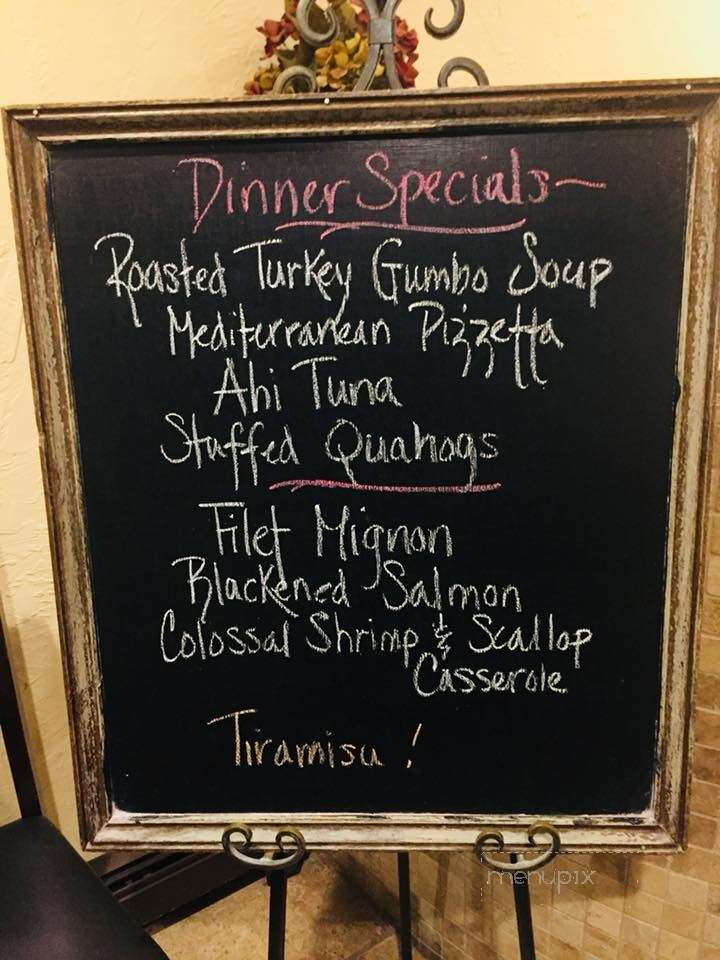 Dinner Specials~
Roasted Turkey Gumbo Soup
Mediterranean Pizzetta
Ahi Tuna
Stuffed Quahogs
Filet Mignon
Blackened Salmon
Colossal Shrimp & Scallop
Casserole
Tiramisu !
menupix